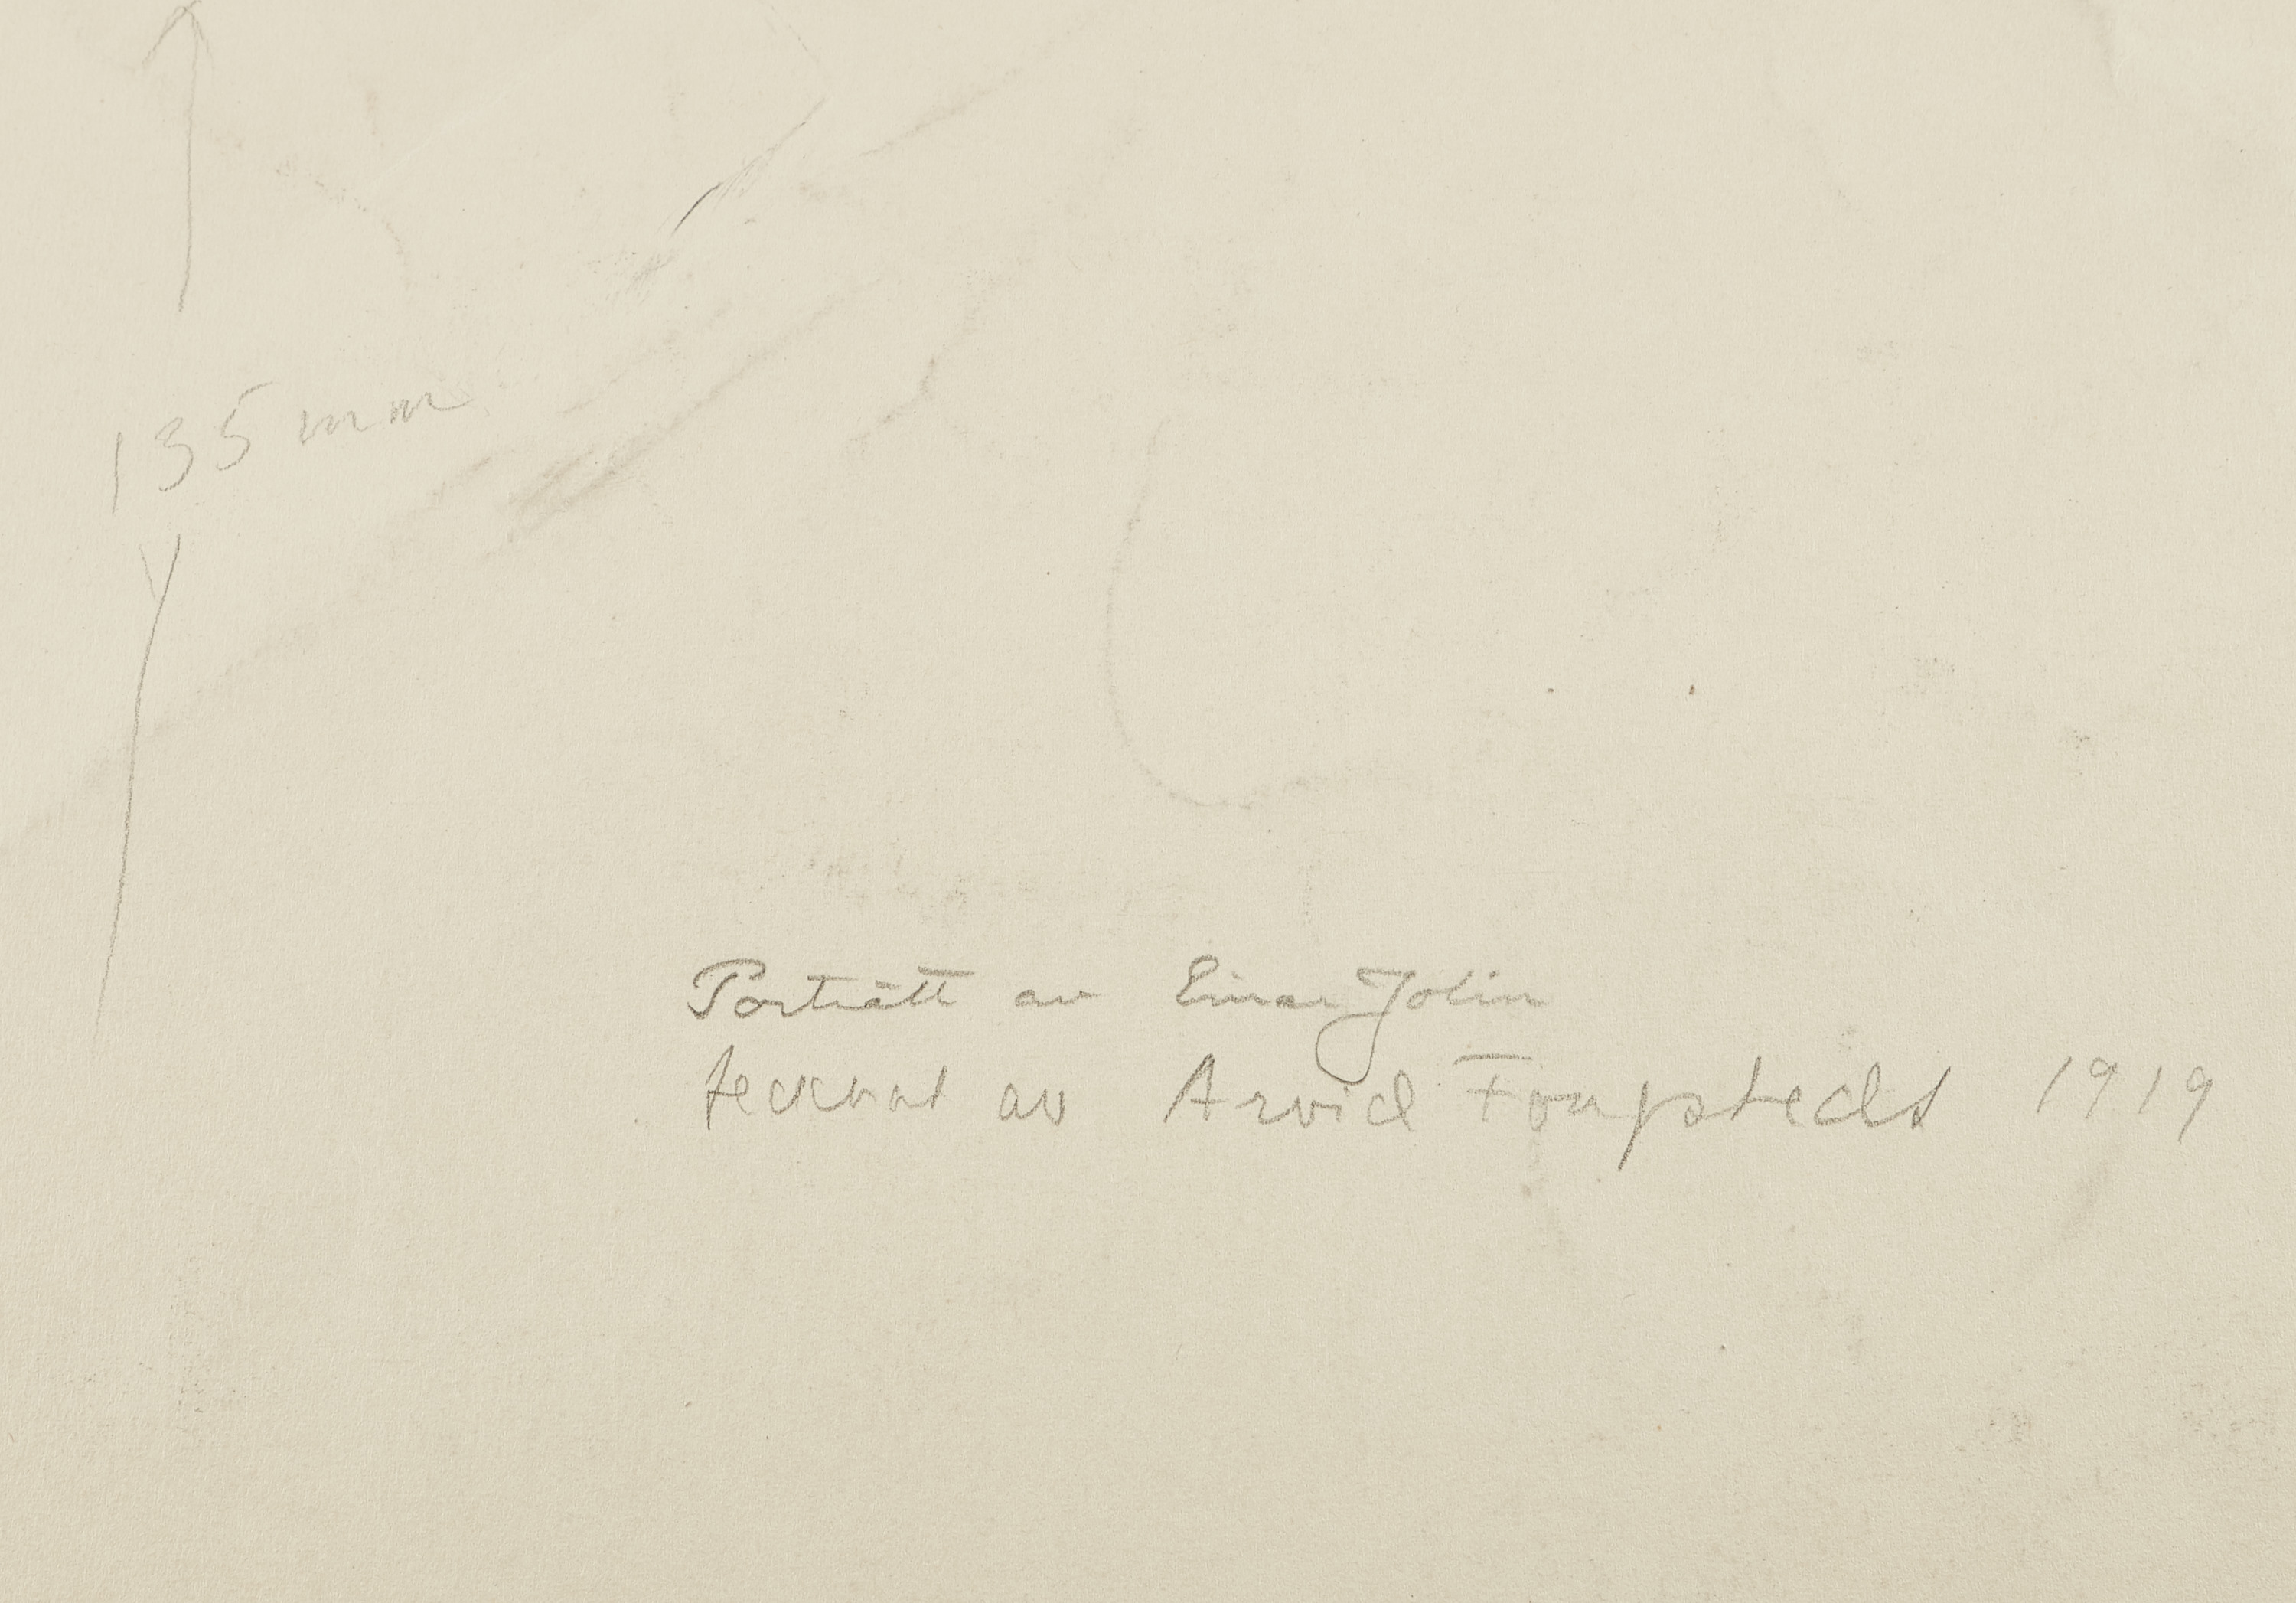 135 mm
Porträtt av Einar Jolin
tecknat av Arvid Fougstedt 1919